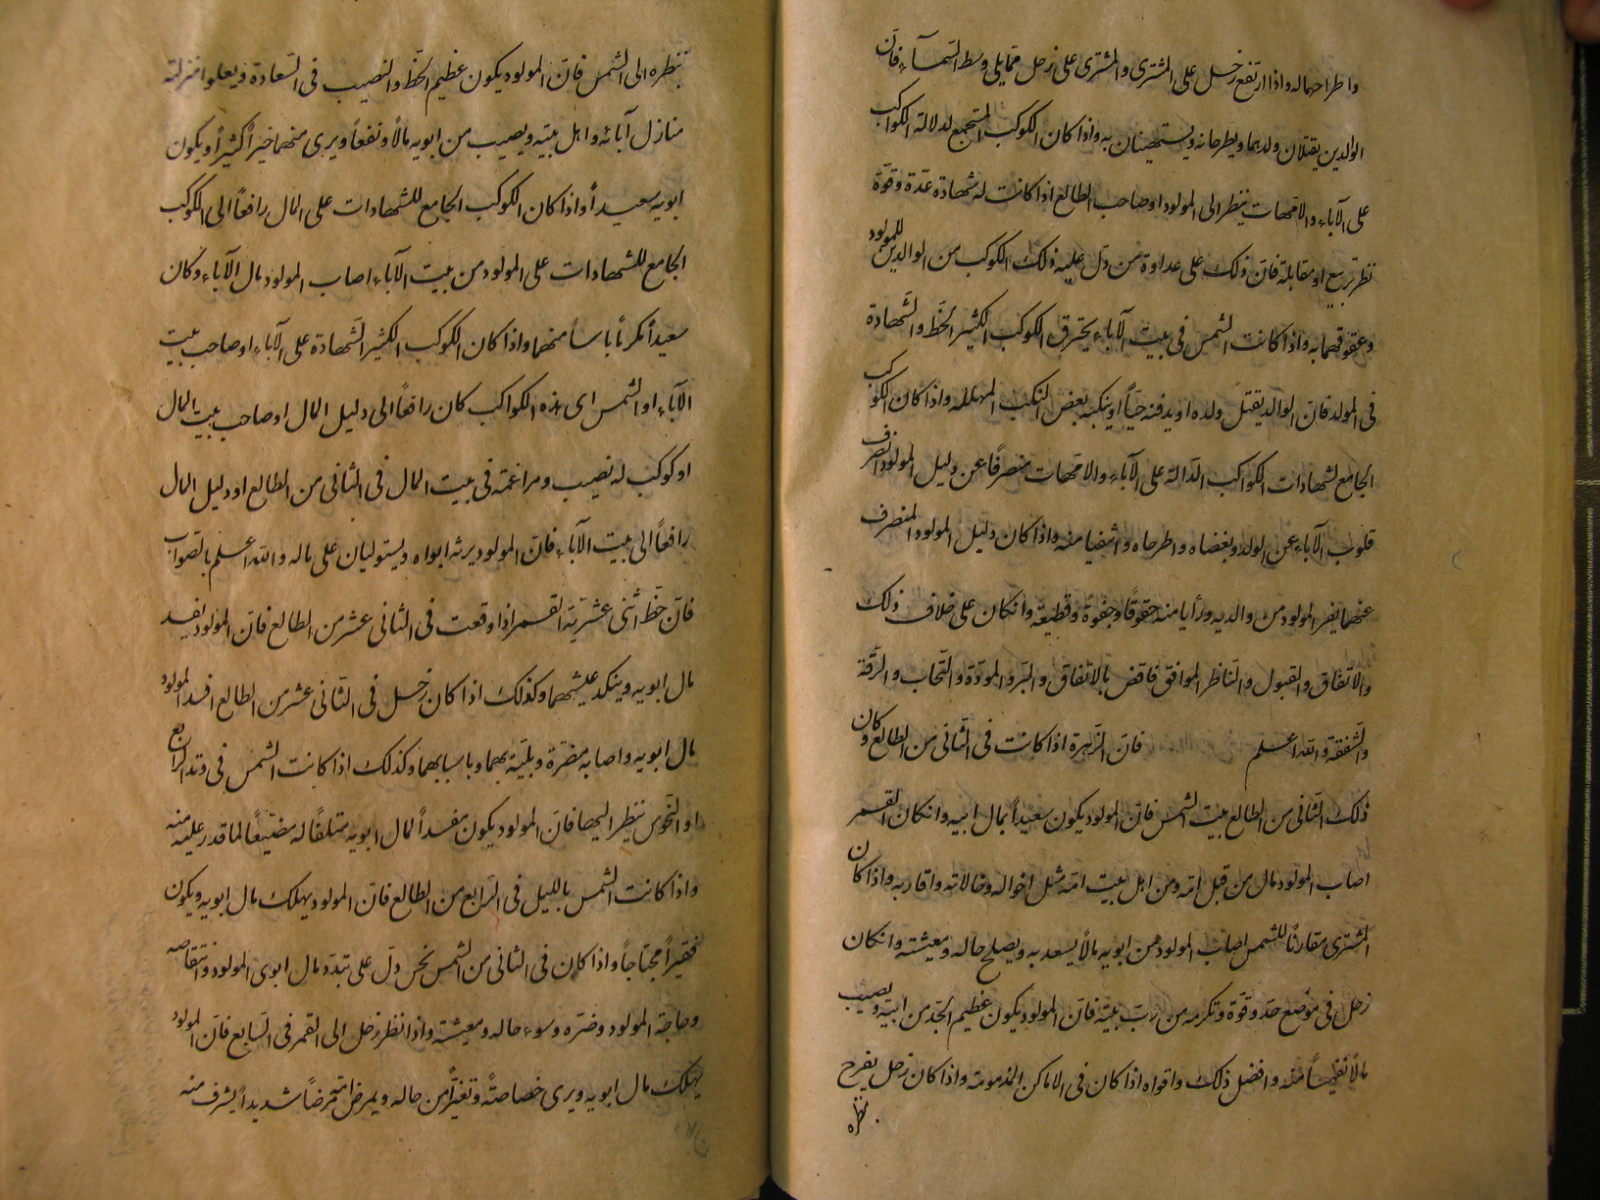 واطراحهاله واذا ارتفع زحل على المشترى والمشترى على زحل مما يلى وسط السمآء فان
الوالدين يقتلان ولدهما ويطرحانه ويستهينان به واذا كان الكوكب المستجمع لدلالة الكواكب
على الآباء والامهات ينظر الى المولود او صاحب الطالع اذا كانت له شهادة عدة وقوة
نظر تربيع او مقابلة فان ذلك على عداوة من دل عليه ذلك الكوكب من الوالدين للمولود
وعقوقهما به واذا كانت الشمس فى بيت الآباء يحترق الكوكب الكثير الحظ والشهادة
فى المولد فان الوالد يقتل ولده او يدفنه حياً او ينكبه بعض النكب المهلكه واذا كان الكوكب
الجامع لشهادات الكواكب الدالة على الآباء والامهات منصرفًا عن دليل المولود انصرف
قلوب الآباء عن الولد وبغضاه واطرحاه وانتفيا منه واذا كان دليل المولود المنصرف
عنهما يفر المولود من والديه ورأيا منه عقوقًا وجفوةً وقطيعة وانكان على خلاف ذلك
والاتفاق والقبول والتناظر الموافق فاقض بالاتفاق والبر والمودة والتحاب والرقة
والشفقة والله اعلم فان الزهرة اذا كانت فى الثانى من الطالع وكان
ذلك الثانى من الطالع بيت الشمس فان المولود يكون سعيداً بمال ابيه وانكان القمر
اصاب المولود مال من قبل امه ومن اهل بيت امه مثل اخواله وخالاته واقاربه واذا كان
المشترى مقارنًا للشمس اصاب المولود من ابويه مالًا يسعد به ويصلح حاله ومعيشته وانكان
زحل فى موضع حد وقوة وتكرمه من رب بيته فان المولود يكون عظيم الجد من ابيه ويصيب
مالًا عظيماً منه وافضل ذلك واقواه اذا كان فى الاماكن المذمومة واذا كان زحل يفرح
بنظره
بنظره الى الشمس فان المولود يكون عظيم الحظ والنصيب فى السعادة ويعلوا منزلته
منازل آبائه واهل بيته ويصيب من ابويه مالًا ونفعاً ويرى منهما خيراً كثيراً ويكون
ابويه سعيداً واذا كان الكوكب الجامع للشهادات على المال رافعاً الى الكوكب
الجامع للشهادات على المولود من بيت الآباء اصاب المولود مال الآباء وكان
سعيداً مكرماً باسبابهما واذا كان الكوكب الكثير الشهادة على الآباء او صاحب بيت
الآباء او الشمس اى هذه الكواكب كان رافعاً الى دليل المال او صاحب بيت المال
او كوكب له نصيب ومزاعمة فى بيت المال فى الثانى من الطالع او دليل المال
رافعاً الى بيت الآباء فان المولود يرثه ابواه ويستوليان على ماله والله اعلم بالصواب
فان حظ اثنى عشرية القمر اذا وقعت فى الثانى عشر من الطالع فان المولود يفسد
مال ابويه وينكد عيشهما وكذلك اذا كان زحل فى الثانى عشر من الطالع افسد المولود
مال ابويه واصابه مضرة وبلية بهما وباسبابهما وكذلك اذا كانت الشمس فى وتد الرابع
او النحوس تنظر اليها فان المولود يكون مفسداً لمال ابويه متلفًا له مضيعًا لما قدر عليه منه
واذا كانت الشمس بالليل فى الرابع من الطالع فان المولود يهلك مال ابويه ويكون
فقيراً محتاجاً واذا كان فى الثانى من الشمس نحس دل على تبدد مال ابوى المولود وانتقاصه
وحاجة المولود وضره وسوء حاله ومعيشته واذا نظر زحل الى القمر فى السابع فان المولود
يهلك مال ابويه ويرى خصاصتةً وتغيراً من حاله ويمرض مرضاً شديداً يشرف منه